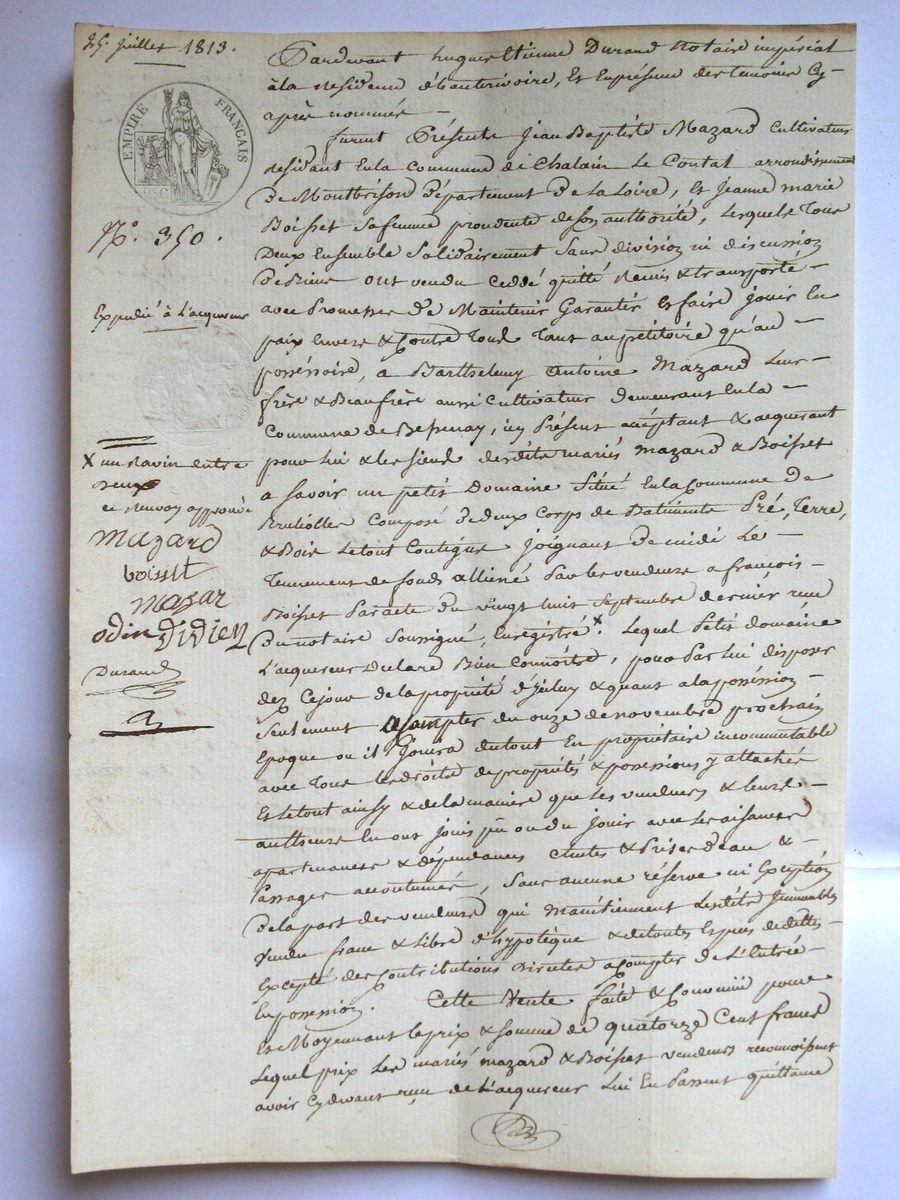 25. juillet 1813.
EMPIRE FRANÇAIS
75 C
N.° 350.
Expedié à L'acquereur
X un Ravin entre
deux
ce Renvoy approuvé
Mazard
boisset
mazar
odin Didier
Durand
Pardevant hugues Etienne Durand Notaire impérial
à la Residence d'hauterivoire, Et En présence des temoins Cy-
après nommés -
furent Présents Jean Baptiste Mazard Cultivateur
Residant En la Commune de Chalain Le Contal arrondissement
De Montbrison Département De la Loire, Et Jeanne marie
Boisset Sa femme procedente de Son authorité, Lesquels Tous
Deux Ensemble Solidairement Sans division ni discussion
De Biens ont vendu Ceddé quitté Remis & transporté -
avec Promesses De Maintenir Garantir Et faire jouir En
paix Envers & Contre Tous Tant au pétitoire qu'au -
possessoire, a Barthelemy Antoine Mazard Leur -
frère & Beaufrère aussi Cultivateur demeurant En la -
Commune de Bessenay, icy Présent acceptant & acquerant
pour Lui & les siens desdits mariés mazard & Boisset
a Savoir un petit Domaine Situé En la Commune De
Brulliolles Composé De deux Corps de Batiments Pré, Terre,
& Bois Le tout Contigus Joignant De midi Le -
Tennement de fonds alliené Par les vendeurs a françois -
Boisset Par acte du vingt huit Septembre dernier reçu
Du notaire Soussigné, Enregistré X. Lequel Petit domaine
L'acquereur Declare Bien Connoitre, pour Par Lui disposer
dez Ce jour de la propriété d'Jceluy & quant a la possession -
Seulement a Compter du onze de novembre prochain
Epoque ou il Jouira du tout En propriétaire incommutable
avec Tous les droits de propriétés & possessions y attachés
Et le tout ainsy & de la maniere que Les vendeurs & leurs -
autheurs En ont jouis pû ou du Jouir avec Les aisances
apartenances & dépendances Chutes & Prises d'eau & -
Passages accoutumés, Sans aucune réserve ni Exception
De la part des vendeurs qui Maintiennent Lesdits Jmmeubles
Vendu franc & Libre d'hypotèque & de toutes Especes de dettes -
Excepté des Contributions Directes a Compter de L'Entrée -
En possession. Cette Vente faite & Convenue pour
Et Moyennant le prix & somme de quatorze Cent francs
Lequel prix Les mariés mazard & Boisset vendeurs reconnoissent
avoir Cy devant reçu de L'acquereur Lui En Passent quittance